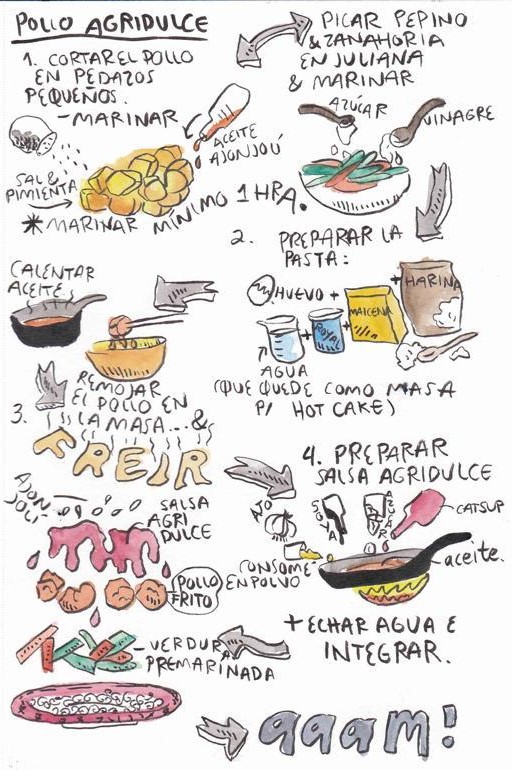 POLLO AGRIDULCE
1. CORTAR EL POLLO
EN PEDAZOS
PEQUEÑOS.
- MARINAR
ACEITE
AJONJOÚ
SAL &
PIMIENTA
* MARINAR MÍNIMO 1 HRA.
PICAR PEPINO
& ZANAHORIA
EN JULIANA
& MARINAR
AZÚCAR
VINAGRE
2. PREPARAR LA
PASTA:
HUEVO +
MAICENA
+ HARINA
ROYAL
+
AGUA
(QUE QUEDE COMO MASA
P/ HOT CAKE)
CALENTAR
ACEITE
3. REMOJAR
EL POLLO EN
LA MASA...&
FREIR
4. PREPARAR
SALSA AGRIDULCE
AJO
SOYA
AZÚCAR
CATSUP
CONSOMÉ
EN POLVO
aceite.
+ ECHAR AGUA E
INTEGRAR.
AJONJOLÍ
SALSA
AGRI
DULCE
POLLO
FRITO
- VERDURA
PREMARINADA
aaam!